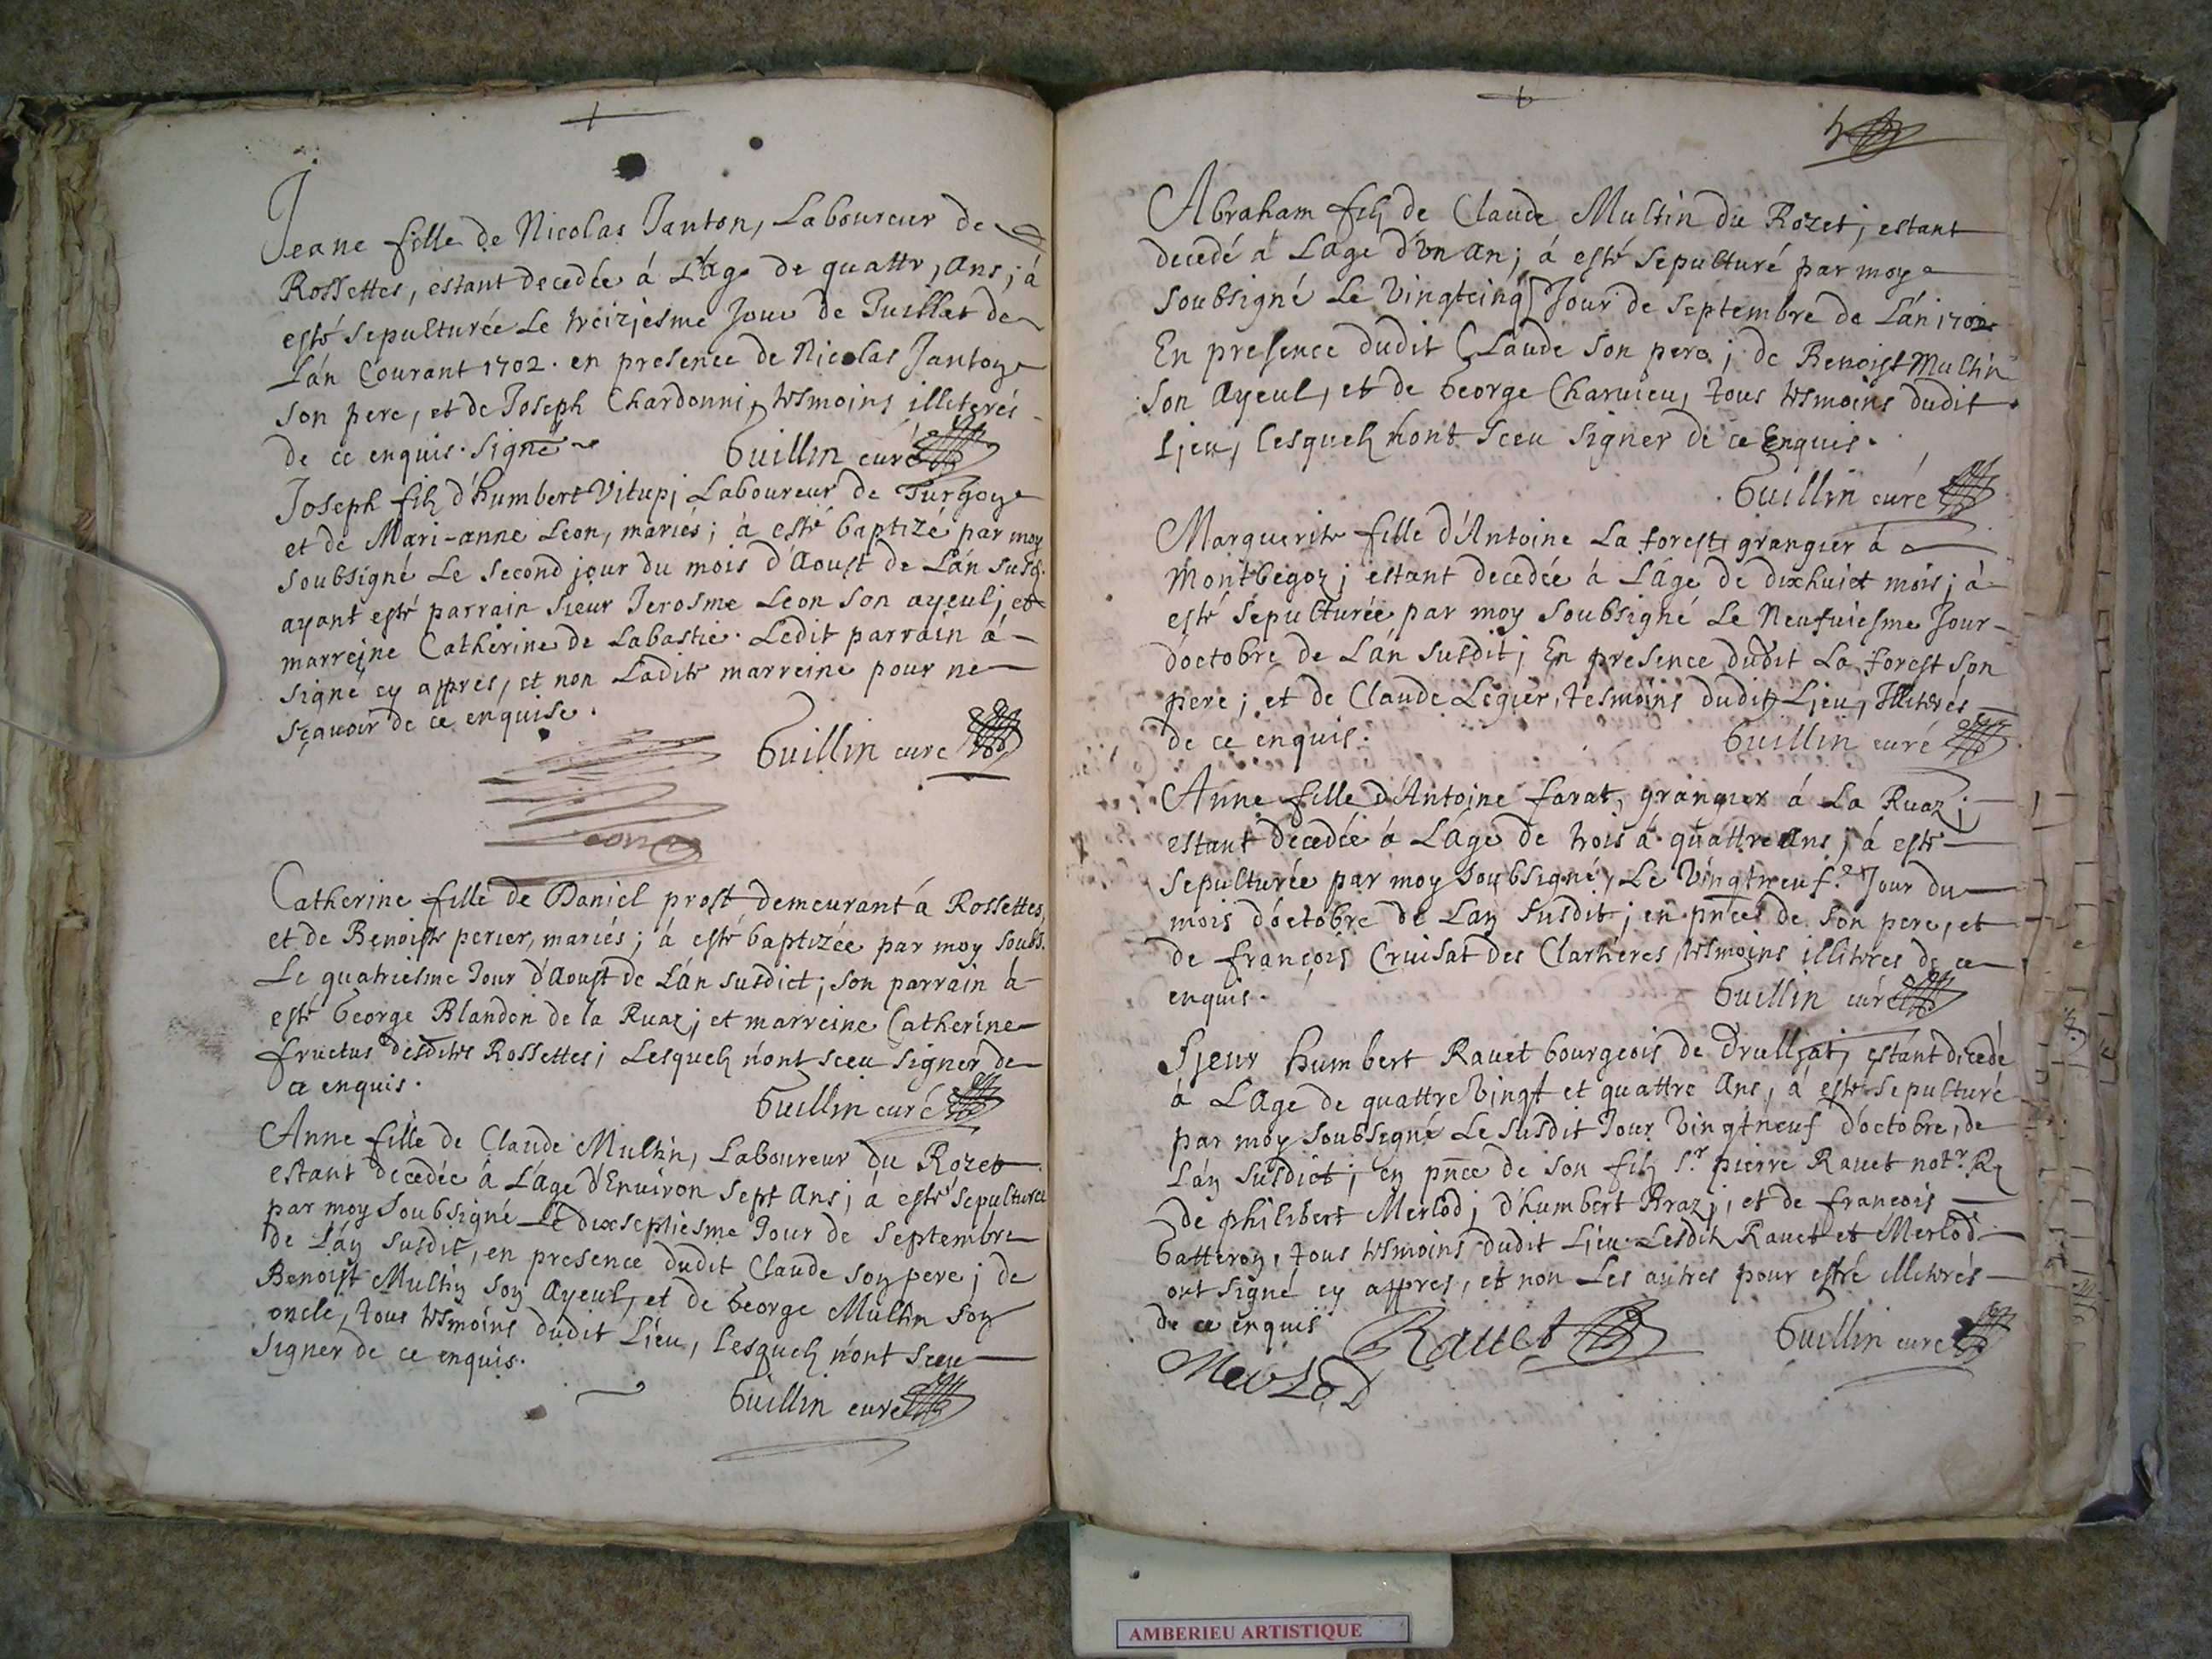 Jeane fille de Nicolas Janton, Laboureur de
Rossettes, estant decedée á L'âge de quattr, ans; á
esté sepulturée Le treiziesme Jour de Juillet de
L'án Courant 1702. en presence de Nicolas Janton
son pere, et de Joseph Chardonni, tesmoins illiterés
de ce enquis. signé
Guillin curé
Joseph filz d'humbert Vitupi Laboureur de Turgon
et de Mari-anne Leon, mariés; à esté baptizé par moy
soubsigné Le second jour du mois d'Aoust de L'án susd.
ayant esté parrain sieur Jerosme Leon son ayeul; et
marreine Catherine de Labastie. Ledit parrain á
signé cy appres, et non Ladite marreine pour ne
sçavoir de ce enquise.
Guillin curé
Leon
Catherine fille de Daniel prost demeurant á Rossettes,
et de Benoiste perier, mariés; á esté baptizée par moy soubs.
Le quatriesme Jour d'Aoust de L'án susdict; son parrain á
esté George Blandon de la Ruaz; et marreine Catherine
fructus desdites Rossettes; Lesquelz n'ont sceu signer de
ce enquis.
Guillin curé
Anne fille de Claude Multin, Laboureur du Rozet
estant decedée á L'áge d'Environ sept Ans; á esté sepulturée
par moy soubsigné Le dixseptiesme Jour de Septembre
de L'án susdit, en presence dudit Claude son pere; de
Benoist Multin son Ayeul, et de George Multin son
oncle, tous tesmoins dudit Lieu, lesquelz n'ont sceu
signer de ce enquis.
Guillin curé
Abraham filz de Claude Multin du Rozet; estant
decedé á L'age d'vn an; á esté sepulturé par moy
soubsigné Le Vingtcinq Jour de Septembre de L'án 1702
En presence dudit Claude son pere; de Benoist Multin
son Ayeul, et de George Charvieu, tous tesmoins dudit
Lieu, lesquelz n'ont sceu signer de ce Enquis.
Guillin curé
Marguerite fille d'Antoine La forest, grangier á
Montbegoz; estant decedée á L'áge de dixhuict mois; á
esté sepulturée par moy soubsigné Le Neufuiesme Jour
d'octobre de L'án susdit; En presence dudit La forest son
pere; et de Claude Legier, tesmoins dudit Lieu, Illiterés
de ce enquis.
Guillin curé
Anne fille d'Antoine farat, grangier á La Ruaz;
estant decedée á L'áge de trois á quattre Ans; á esté
sepulturée par moy soubsigné, Le Vingtneuf.e Jour du
mois d'octobre de L'an susdit; en pnces de son pere, et
de françois Cruisat des Clartieres, tesmoins illiteres de ce
enquis.
Guillin curé
Sieur humbert Rauet bourgeois de Druilliat; estant decedé
á L'Age de quattre Vingt et quattre Ans, á esté sepulturé
par moy soubsigné Le susdit Jour Vingtneuf d'octobre, de
L'án susdict; en pnce de son filz s.r pierre Rauet not.r
de philibert Merlod; d'humbert Braz; et de francois
Gatteron, tous tesmoins dudit Lieu. Lesditz Rauet et Merlod
ont signé cy appres, et non Les autres pour estre illiterés
de ce enquis
Rauet
Guillin curé
Merlod
AMBERIEU ARTISTIQUE